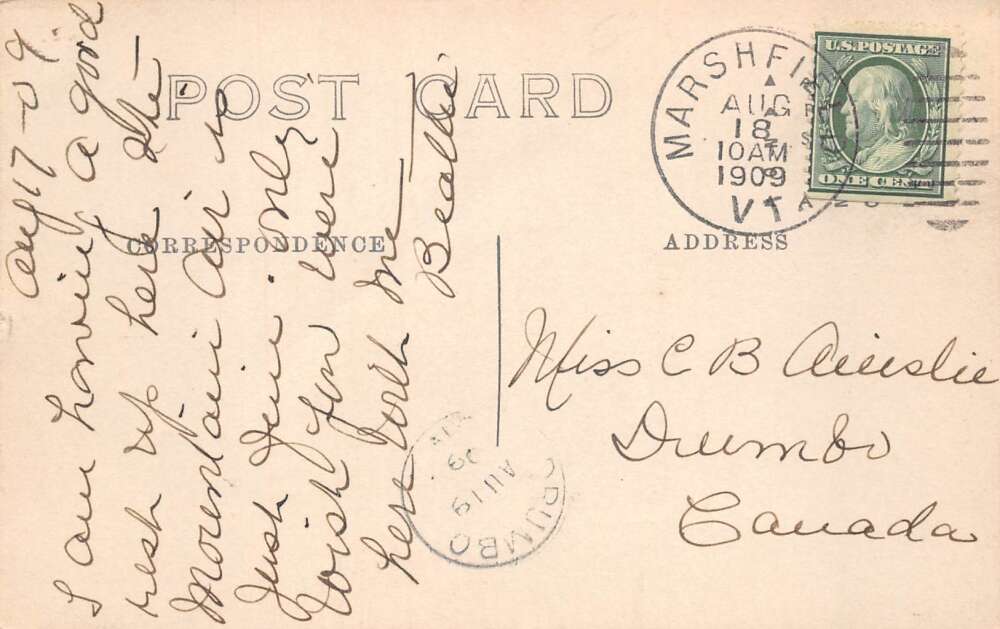 POST CARD
CORRESPONDENCE
ADDRESS
Aug 17-09
I am having a good
rest up here the
Mountain air is
just fine only
wish you were
here with me
MARSHFIELD
AUG
18
10 AM
1909
VT
U.S. POSTAGE
ONE CENT
Miss C B Ainslie
Drumbo
Canada
DRUMBO
AU 19
09